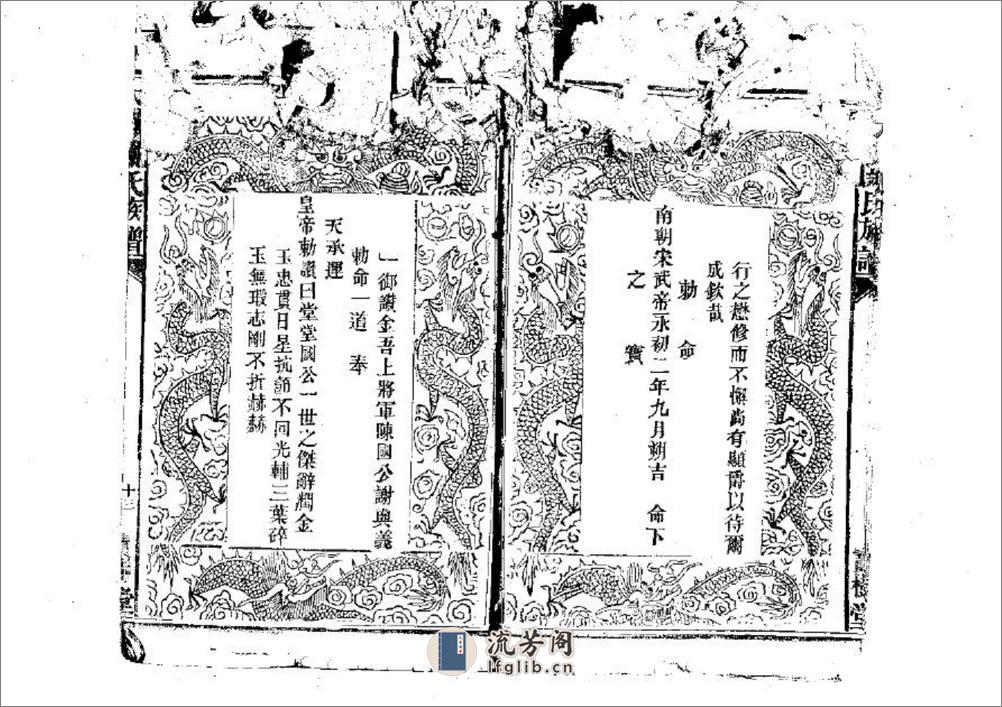 行之懋修而不懈尚有顯爵以待爾
成欽哉
勅命
南朝宋武帝永初二年九月朔吉 命下
之寶
一御讃金吾上將軍陳國公謝與義
勅命一道 奉
天承運
皇帝勅讃曰堂堂國公一世之傑辭潤金
玉忠貫日星抗節不囘光輔三葉碎
玉無瑕志剛不折赫赫
氏族譜
十三
堂
流芳阁
lfglib.cn